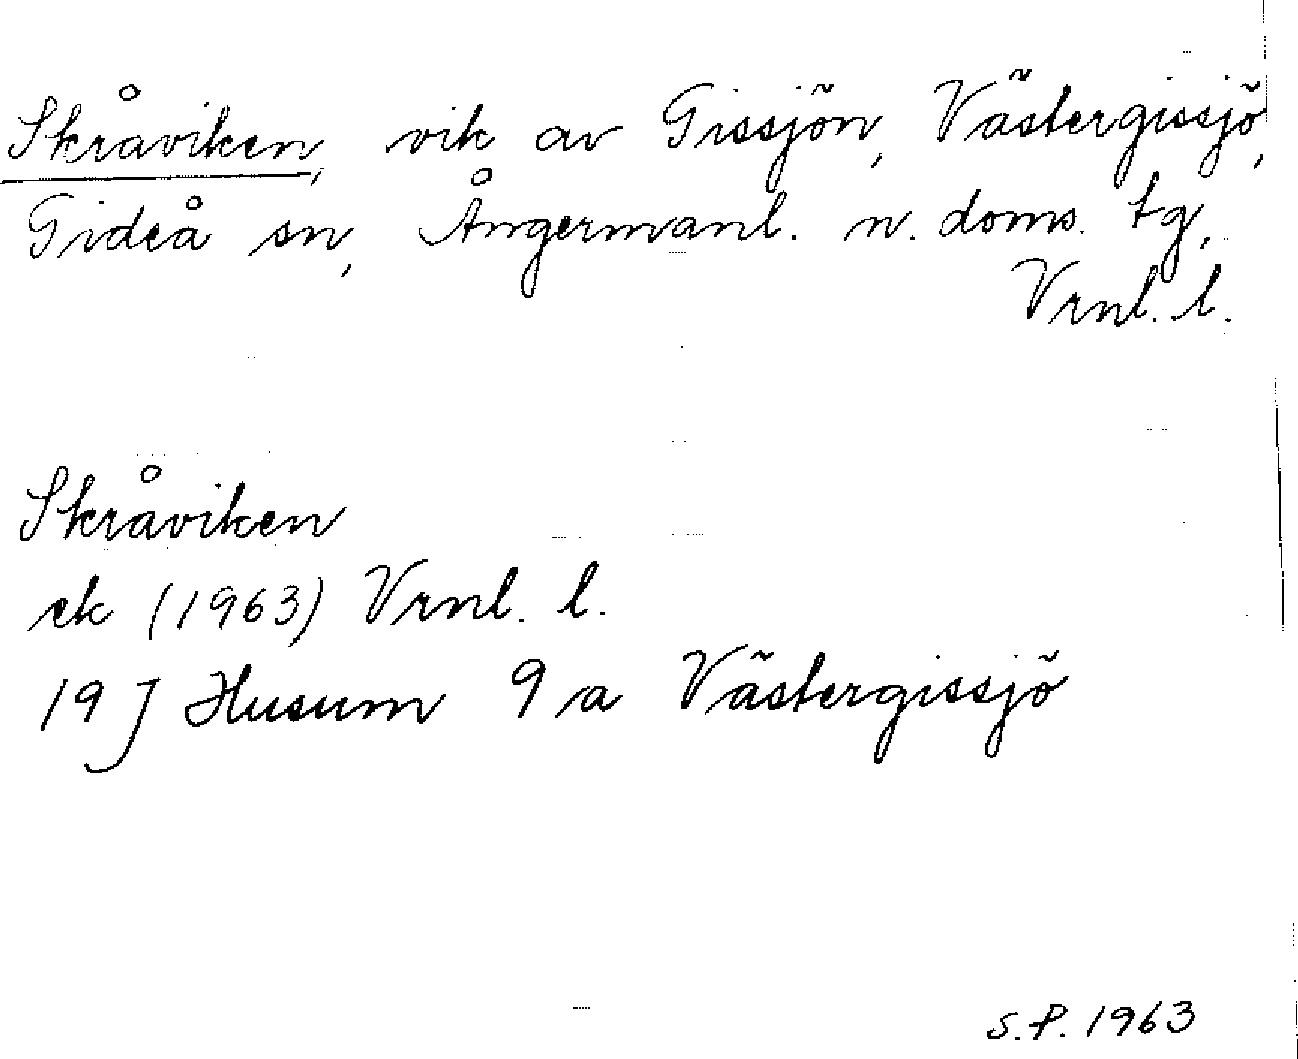 Skråviken, vik av Gissjön, Västergissjö,
Gideå sn, Ångermanl. n. doms. tg,
Vrnl. l.
Skråviken
ek (1963) Vrnl. l.
19 J Husum 9 a Västergissjö
S.P. 1963